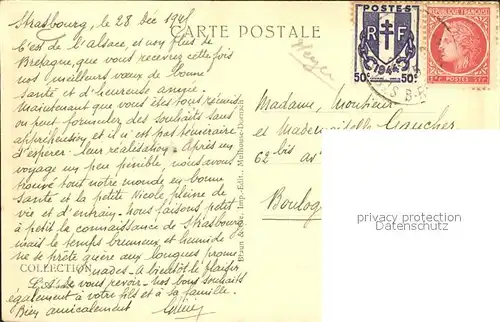 Strasbourg, le 28 Déc 1945
CARTE POSTALE
C'est de l'alsace, et non plus de
Bretagne, que vous recevrez cette fois
nos meilleurs vœux de bonne
santé et d'heureuse année.
Maintenant que vous êtes tous réunis
on peut formuler des souhaits sans
appréhension et il n'est pas téméraire
d'espérer leur réalisation. Après un
voyage un peu pénible, nous avons
trouvé tout notre monde en bonne
santé et la petite Nicole, pleine de
vie et d'entrain. Nous faisons petit
à petit la connaissance de Strasbourg
mais le temps brumeux et humide
ne se prête guère aux longues prome
COLLECTION
nades. A bientôt le plaisir
L.A.M.
de vous revoir. Nos bons souhaits
également à votre fils et à sa famille.
Bien amicalement
Braun & Cie, Imp.-Edit., Mulhouse-Dornach
POSTES
RF
1944
50c 50c
RÉPUBLIQUE FRANÇAISE
POSTES
Madame, Monsieur
et Mademoiselle Gaucher
62 bis av
Boulog
privacy protection
Datenschutz